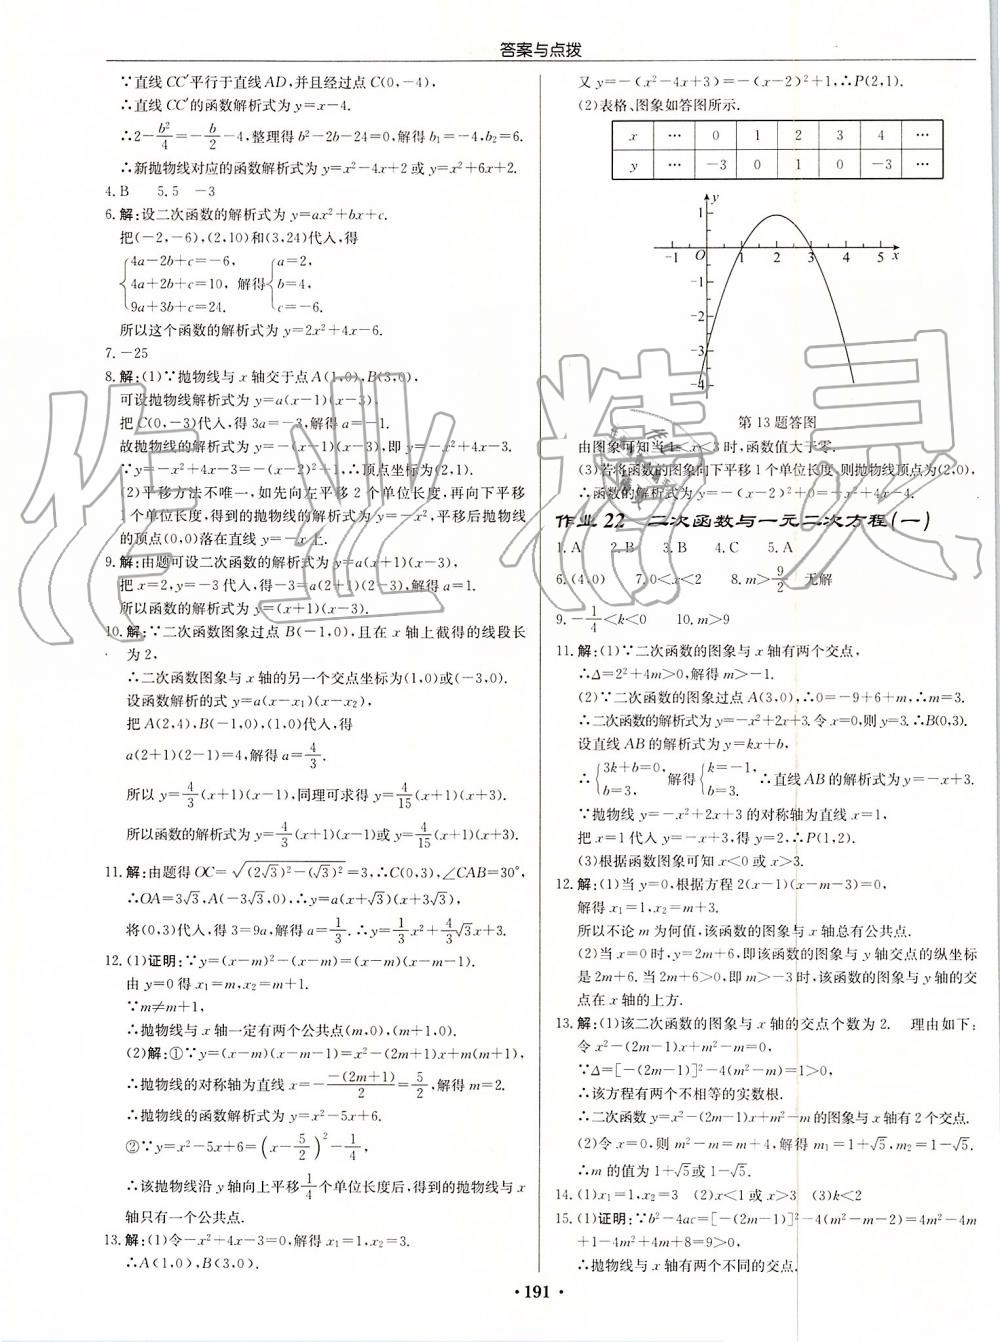 答案与点拨
∵直线CC′平行于直线AD,并且经过点C(0,-4),
∴直线CC′的函数解析式为y=x-4.
∴2-b²/4=-b/2-4,整理得b²-2b-24=0,解得b₁=-4,b₂=6.
∴新抛物线对应的函数解析式为y=x²-4x+2或y=x²+6x+2.
4.B 5.5 -3
6.解:设二次函数的解析式为y=ax²+bx+c.
把(-2,-6),(2,10)和(3,24)代入,得
{4a-2b+c=-6, {a=2,
4a+2b+c=10, 解得 b=4,
9a+3b+c=24. c=-6.
所以这个函数的解析式为y=2x²+4x-6.
7.-25
8.解:(1)∵抛物线与x轴交于点A(1,0),B(3,0),
可设抛物线解析式为y=a(x-1)(x-3).
把C(0,-3)代入,得3a=-3,解得a=-1.
故抛物线的解析式为y=-(x-1)(x-3),即y=-x²+4x-3.
∵y=-x²+4x-3=-(x-2)²+1,∴顶点坐标为(2,1).
(2)平移方法不唯一,如先向左平移2个单位长度,再向下平移
1个单位长度,得到的抛物线的解析式为y=-x²,平移后抛物线
的顶点(0,0)落在直线y=-x上.
9.解:由题可设二次函数的解析式为y=a(x+1)(x-3),
把x=2,y=-3代入,得-3=a(2+1)(2-3),解得a=1.
所以函数的解析式为y=(x+1)(x-3).
10.解:∵二次函数图象过点B(-1,0),且在x轴上截得的线段长
为2,
∴二次函数图象与x轴的另一个交点坐标为(1,0)或(-3,0).
设函数解析的式y=a(x-x₁)(x-x₂),
把A(2,4),B(-1,0),(1,0)代入,得
a(2+1)(2-1)=4,解得a=4/3.
所以y=4/3(x+1)(x-1),同理可求得y=4/15(x+1)(x+3).
所以函数的解析式为y=4/3(x+1)(x-1)或y=4/15(x+1)(x+3).
11.解:由题得OC=√((2√3)²-(√3)²)=3,∴C(0,3),∠CAB=30°,
∴OA=3√3,A(-3√3,0),∴y=a(x+√3)(x+3√3),
将(0,3)代入,得3=9a,解得a=1/3.∴y=1/3x²+4/3√3x+3.
12.(1)证明:∵y=(x-m)²-(x-m)=(x-m)(x-m-1).
由y=0得x₁=m,x₂=m+1.
∵m≠m+1,
∴抛物线与x轴一定有两个公共点(m,0),(m+1,0).
(2)解:①∵y=(x-m)(x-m-1)=x²-(2m+1)x+m(m+1),
∴抛物线的对称轴为直线x=-(-(2m+1))/2=5/2,解得m=2.
∴抛物线的函数解析式为y=x²-5x+6.
②∵y=x²-5x+6=(x-5/2)²-1/4,
∴该抛物线沿y轴向上平移1/4个单位长度后,得到的抛物线与x
轴只有一个公共点.
13.解:(1)令-x²+4x-3=0,解得x₁=1,x₂=3.
∴A(1,0),B(3,0).
又y=-(x²-4x+3)=-(x-2)²+1,∴P(2,1).
(2)表格、图象如答图所示.
x … 0 1 2 3 4 …
y … -3 0 1 0 -3 …
y
1
-1 O 1 2 3 4 5 x
-1
-2
-3
-4
第13题答图
由图象可知当1<x<3时,函数值大于零.
(3)若将函数的图象向下平移1个单位长度,则抛物线顶点为(2,0),
∴函数的解析式为y=-(x-2)²+0=-x²+4x-4.
作业22 二次函数与一元二次方程(一)
1.A 2.B 3.B 4.C 5.A
6.(4,0) 7.0<x<2 8.m>9/2 无解
9.-1/4<k<0 10.m>9
11.解:(1)∵二次函数的图象与x轴有两个交点,
∴Δ=2²+4m>0,解得m>-1.
(2)∵二次函数的图象过点A(3,0),∴0=-9+6+m,∴m=3.
∴二次函数的解析式为y=-x²+2x+3.令x=0,则y=3.∴B(0,3).
设直线AB的解析式为y=kx+b,
∴{3k+b=0, 解得{k=-1, ∴直线AB的解析式为y=-x+3.
b=3, b=3.
∵抛物线y=-x²+2x+3的对称轴为直线x=1,
把x=1代入y=-x+3,得y=2,∴P(1,2).
(3)根据函数图象可知x<0或x>3.
12.解:(1)当y=0,根据方程2(x-1)(x-m-3)=0,
解得x₁=1,x₂=m+3.
所以不论m为何值,该函数的图象与x轴总有公共点.
(2)当x=0时,y=2m+6,即该函数的图象与y轴交点的纵坐
标是2m+6.当2m+6>0,即m>-3时,该函数的图象与y轴的交
点在x轴的上方.
13.解:(1)该二次函数的图象与x轴的交点个数为2. 理由如下:
令x²-(2m-1)x+m²-m=0,
∵Δ=[-(2m-1)]²-4(m²-m)=1>0,
∴该方程有两个不相等的实数根.
∴二次函数y=x²-(2m-1)x+m²-m的图象与x轴有2个交点.
(2)令x=0,则m²-m=m+4,解得m₁=1+√5,m₂=1-√5.
∴m的值为1+√5或1-√5.
14.(1)x₁=1,x₂=3 (2)x<1或x>3 (3)k<2
15.(1)证明:∵b²-4ac=[-(2m-1)]²-4(m²-m-2)=4m²-4m
+1-4m²+4m+8=9>0,
∴抛物线与x轴有两个不同的交点.
·191·
作业精灵